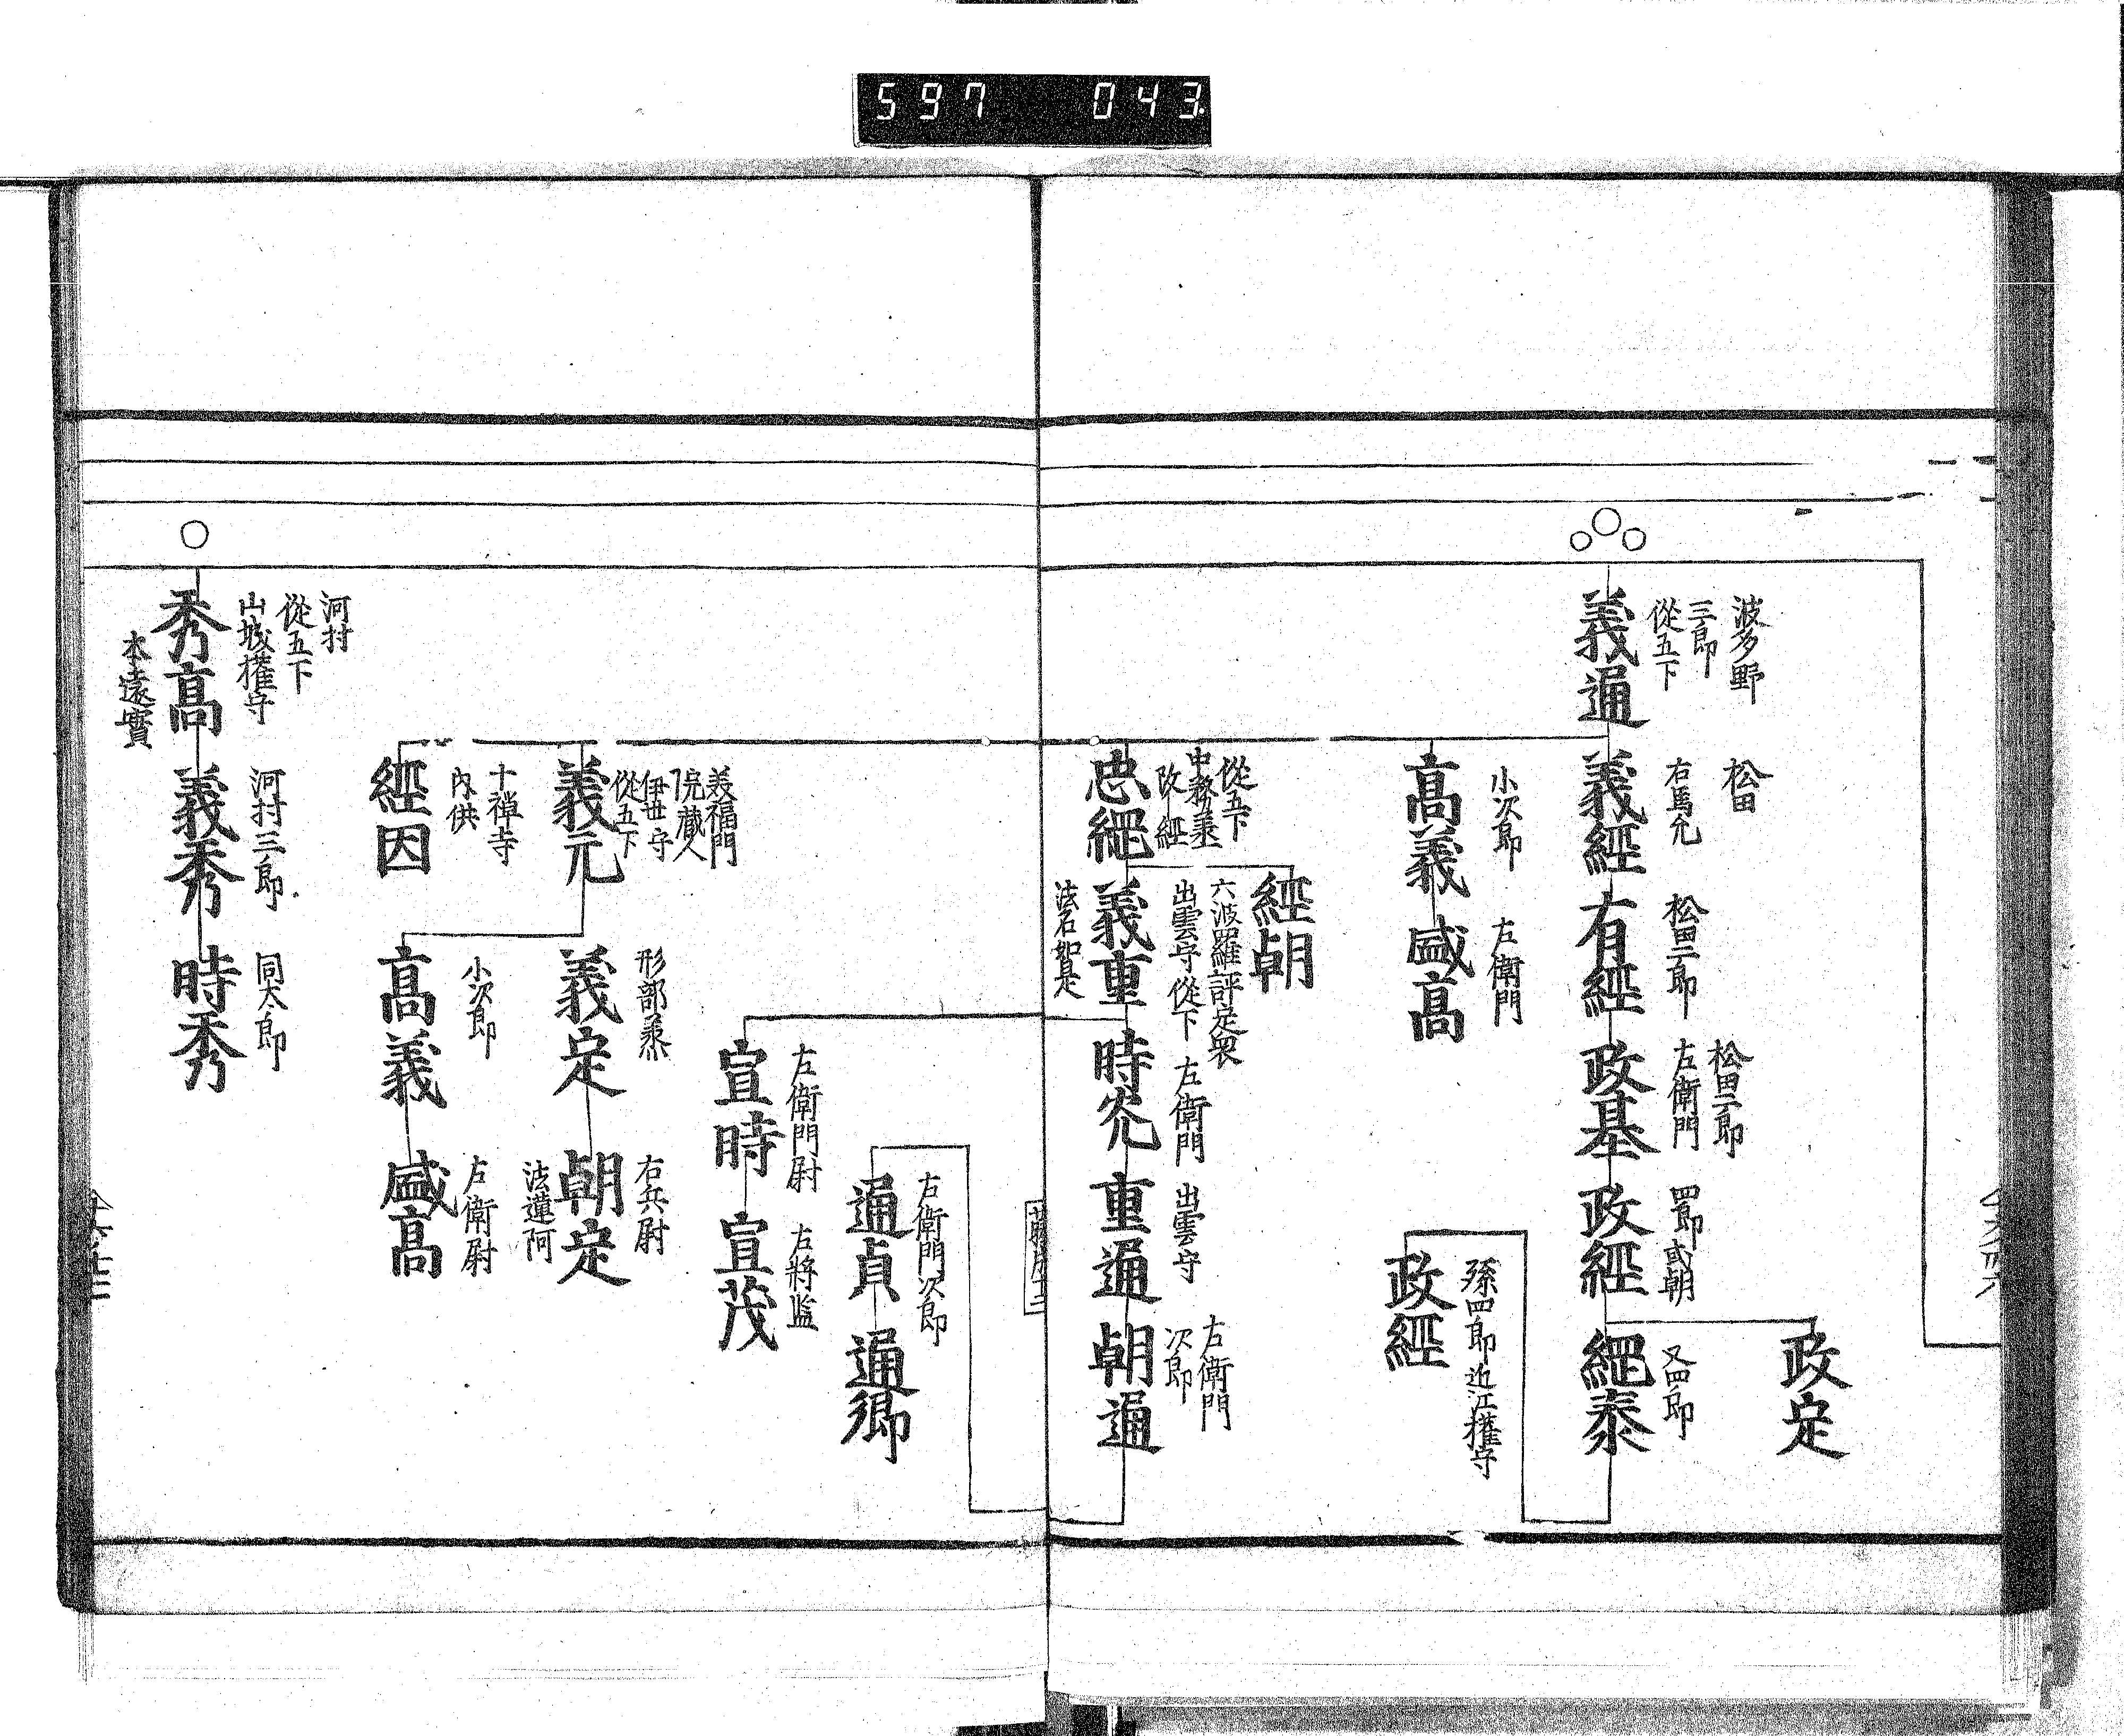 597 043
波多野
三郎
從五下
義通
松田
右馬允
義經
松田二郎
有經
松田二郎
左衛門
政基
四郎 或朝
政經
政定
又四郎
經泰
孫四郎近江權守
政經
小次郎
高義
左衛門
盛高
從五下
中務丞
改經
忠經
經朝
六波羅評定衆
出雲守從下
義重
法名如是
左衛門
時光
出雲守
重通
左衛門
次郎
朝通
右衛門次郎
通貞
通郷
左衛門尉
宣時
左將監
宣茂
美福門
院蔵人
伊世守
從五下
義元
形部丞
義定
右兵尉
朝定
法蓮阿
小次郎
高義
左衛尉
盛高
十禅寺
内供
經因
河村
從五下
山城權守
秀高
本遠實
河村三郎
義秀
同太郎
時秀